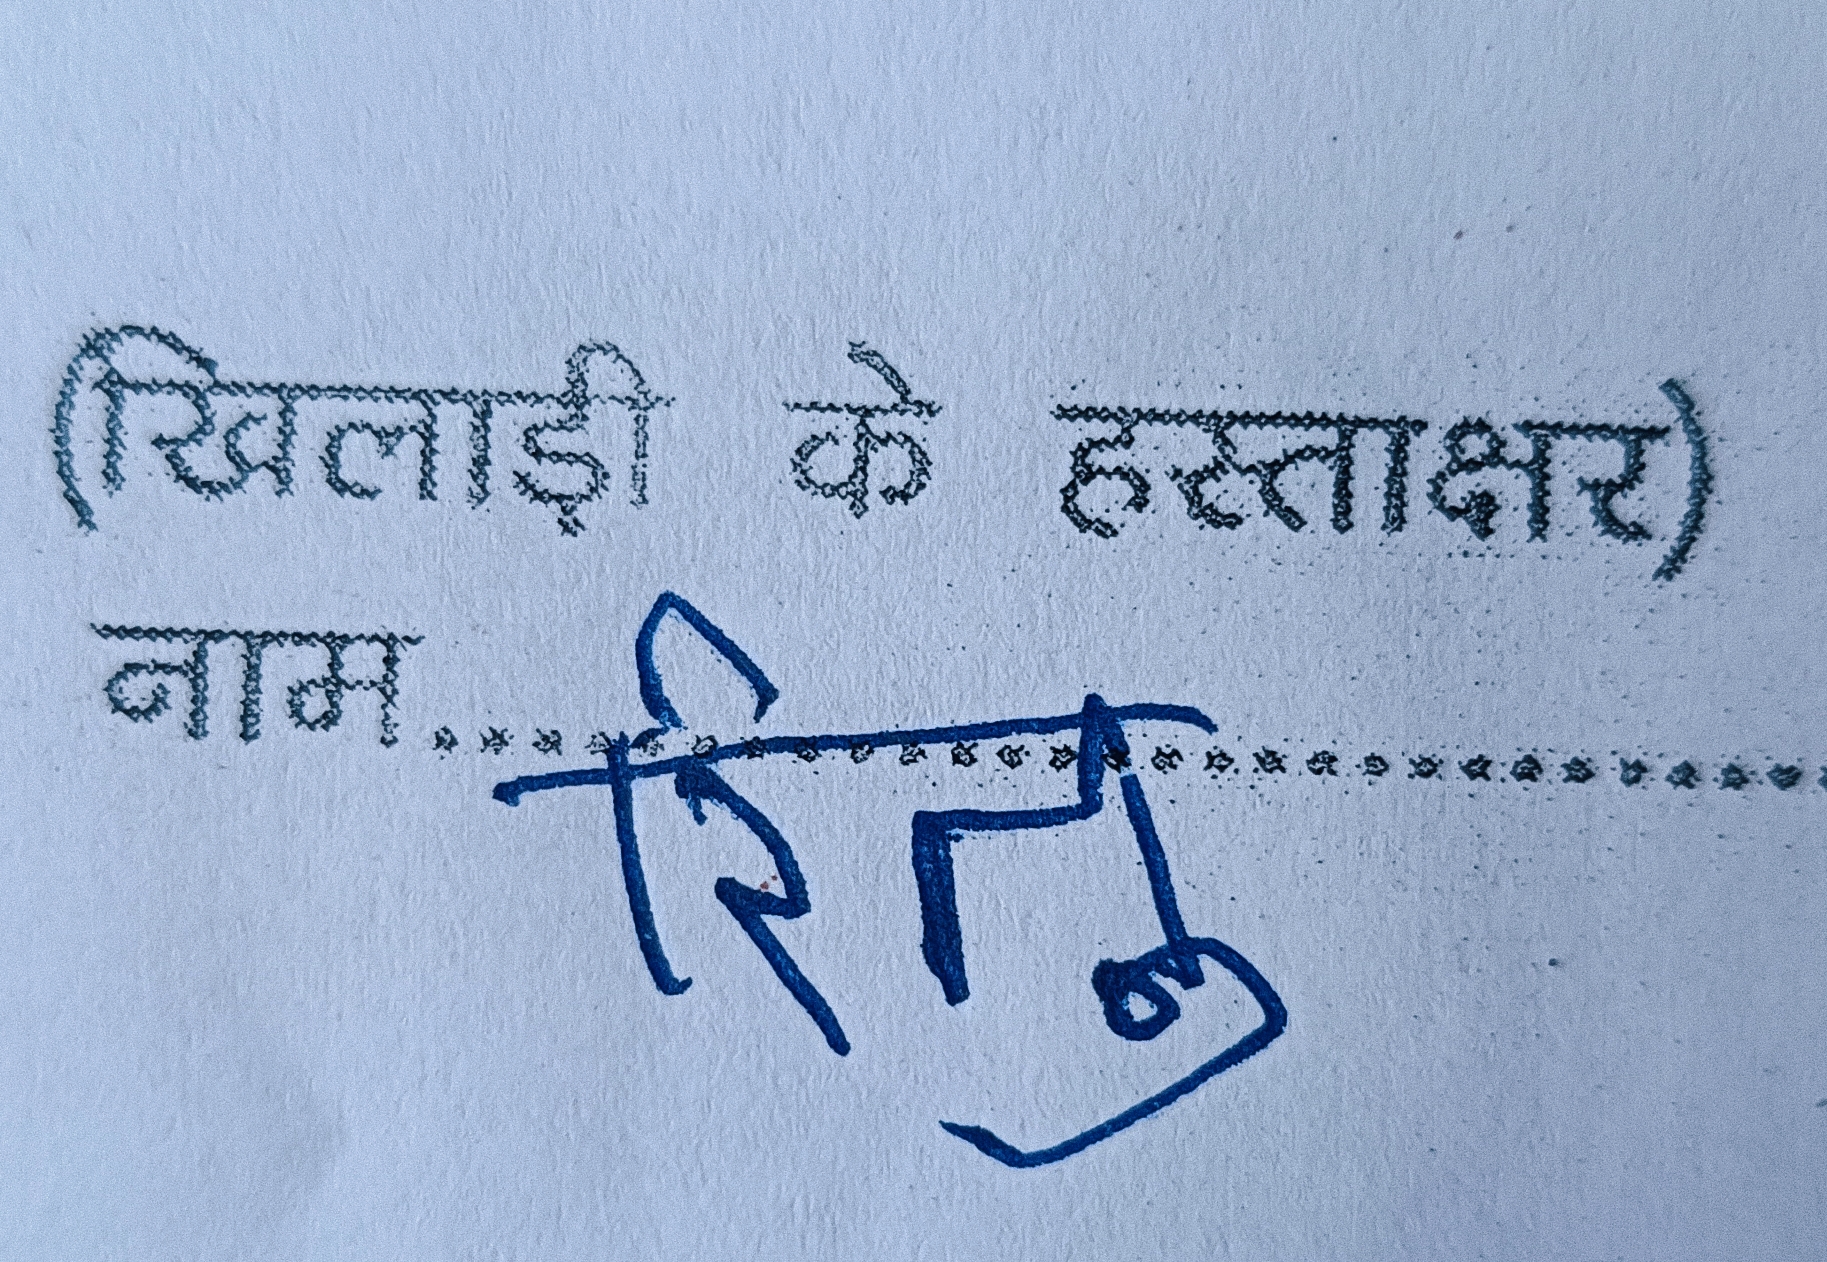 (खिलाड़ी के हस्ताक्षर)
नाम.............................. रितु